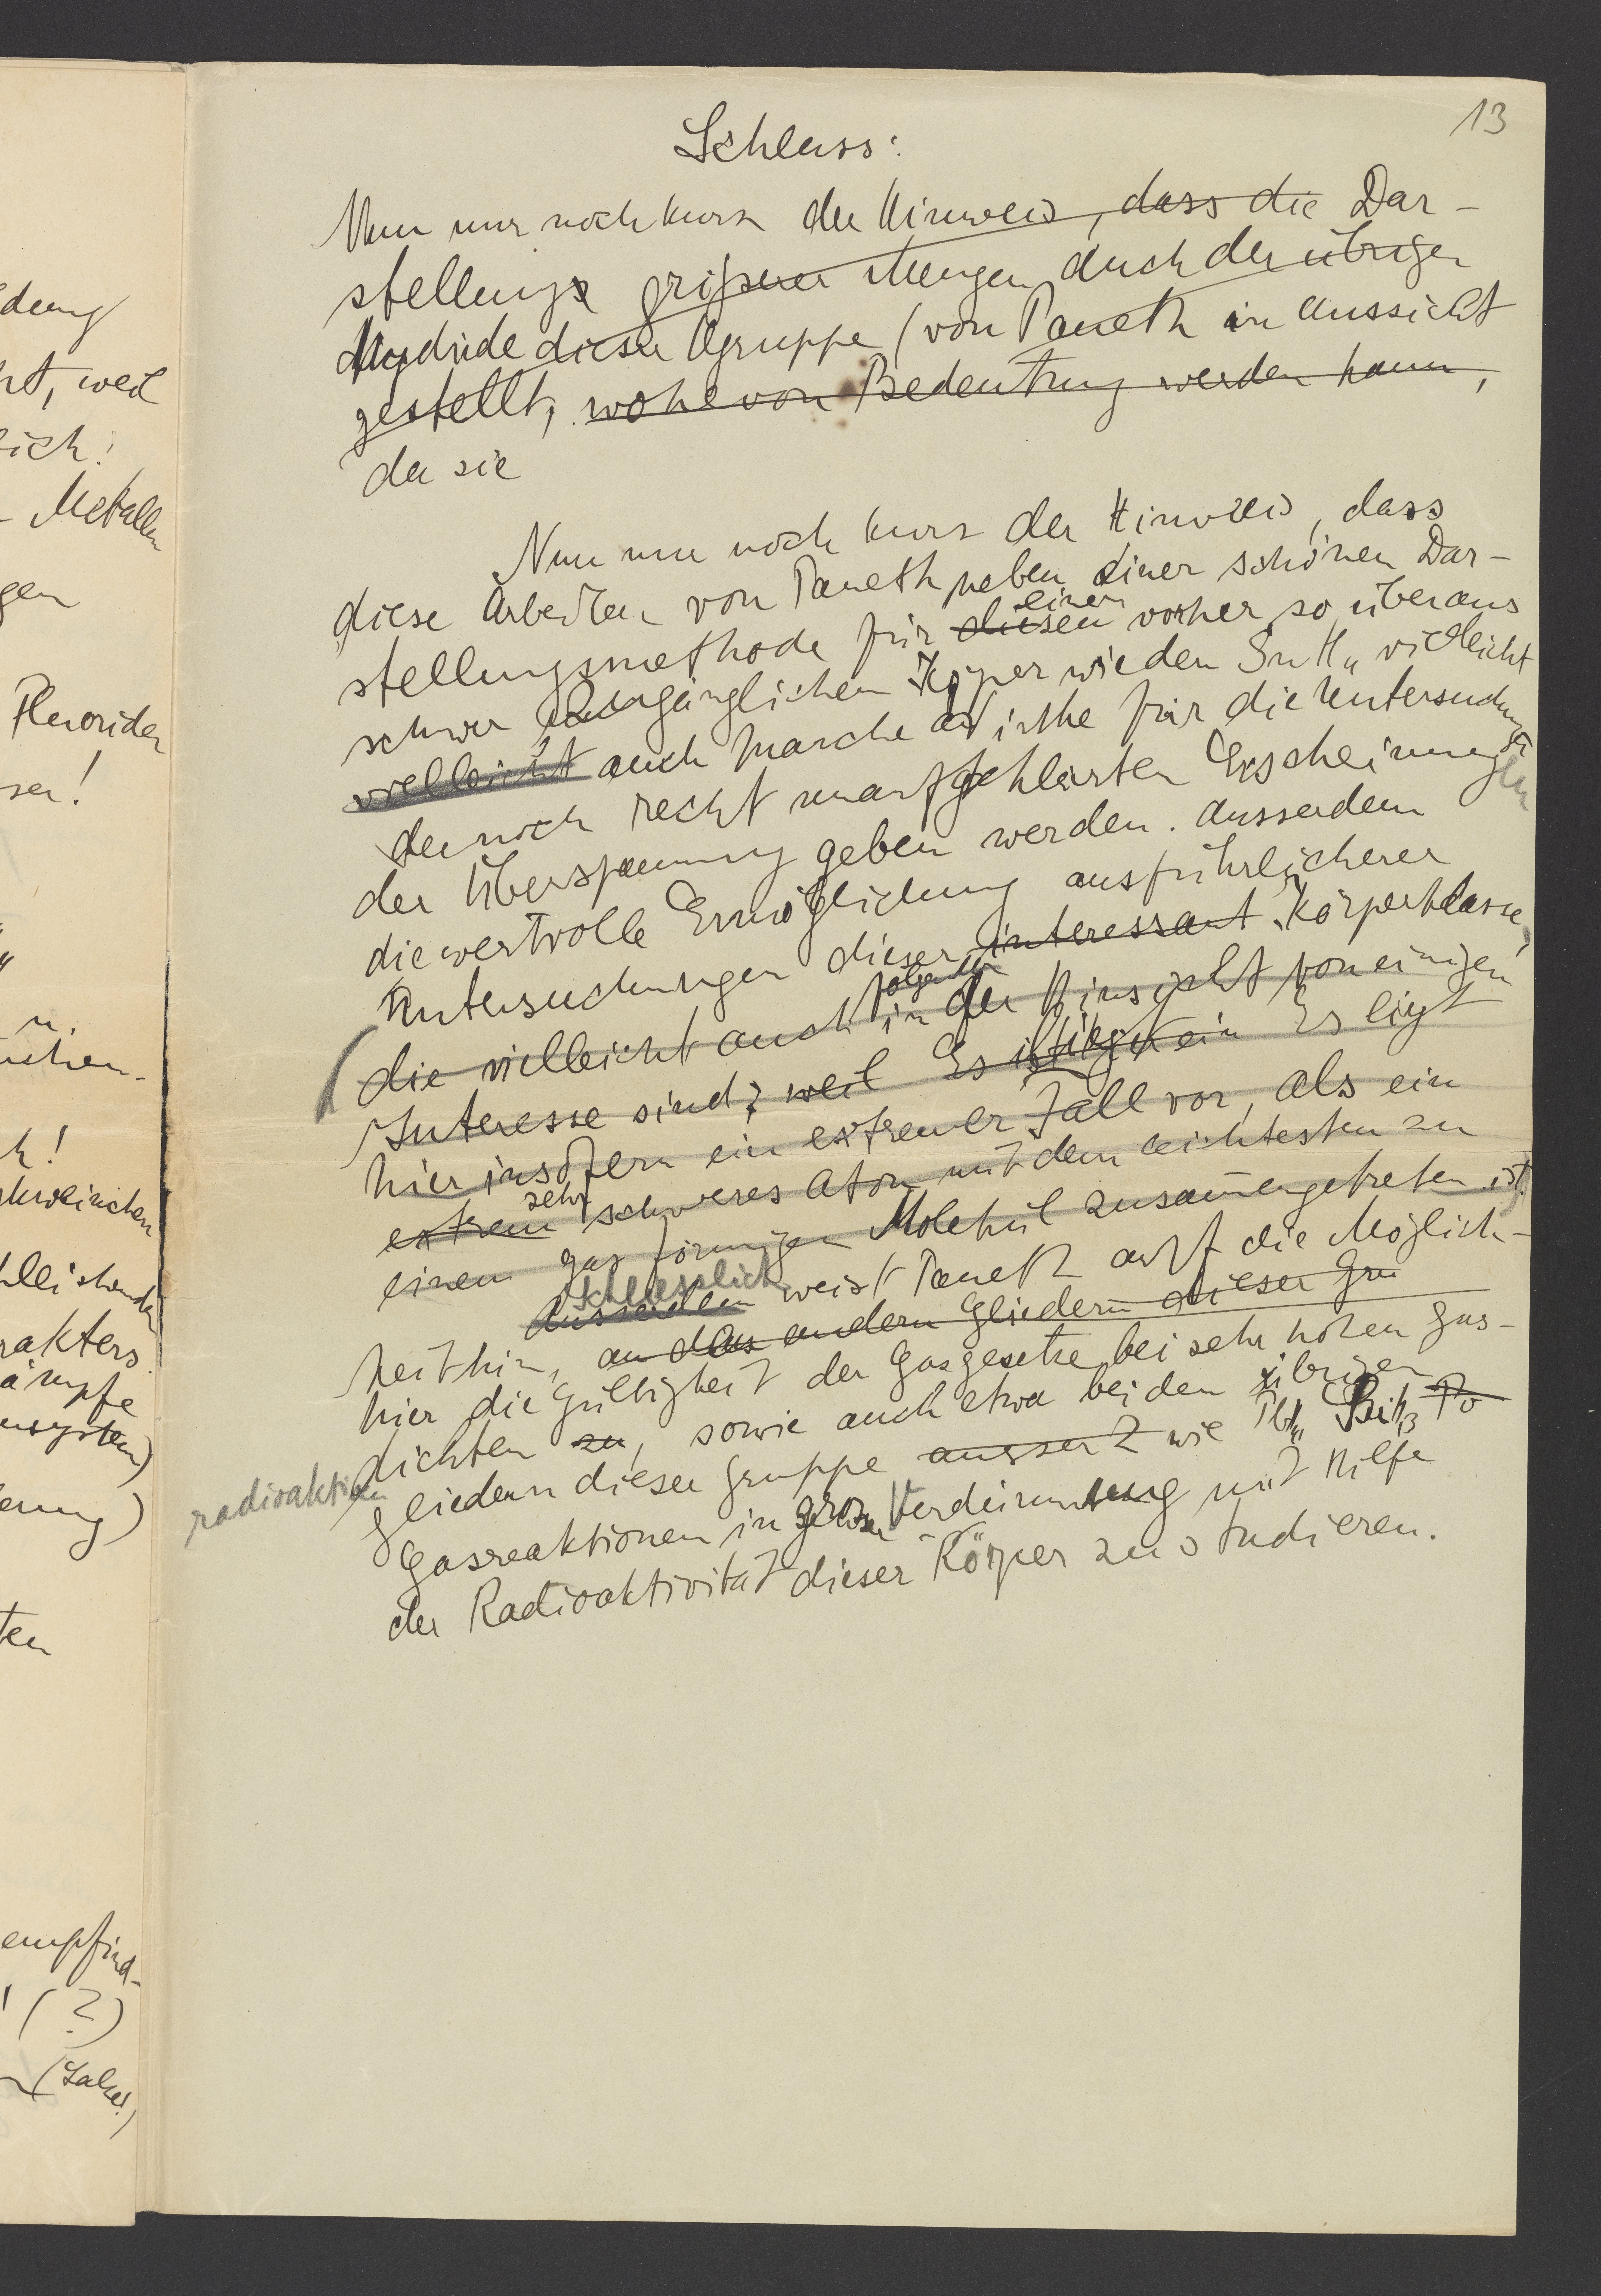 13
Schluss:
Nun nur noch kurz der Hinweis, dass die Dar-
stellung grösserer Mengen auch der übrigen
Hydride dieser Gruppe (von Paneth in Aussicht
gestellt, wohl von Bedeutung werden kann,
da sie
Nun nur noch kurz der Hinweis, dass
diese Arbeiten von Paneth neben einer schönen Dar-
stellungsmethode für diesen einen vorher so überaus
schwer zugänglichen Körper wie den SnH₄ vielleicht
vielleicht auch manche Winke für die Untersuchung
der noch recht unaufgeklärten Erscheinungen
der Überspannung geben werden. Ausserdem
die wertvolle Ermöglichung ausführlicherer
Untersuchungen dieser interessant Körperklasse,
die vielleicht auch in folgender der Hinsicht von einigem
Interesse sind; weil Es ist liegt ein Es liegt
hier insofern ein extremer Fall vor, als ein
extrem sehr schweres Atom mit dem leichtesten zu
einem gasförmigen Molekül zusammengetreten ist.)
Ausserdem Schliesslich weist Paneth auf die Möglich-
keit hin, an das andern Gliedern dieser Gru
hier die Gültigkeit der Gasgesetze bei sehr hohen Gas-
dichten zu, sowie auch etwa bei den übrigen
radioaktiven
Gliedern dieser Gruppe ausser Z wie PbH₄ BiH₃ Po
Gasreaktionen in grosser Verdünnung mit Hilfe
der Radioaktivität dieser Körper zu studieren.
dung
weil
ich!
- Metallen
gen
Fluoriden
ser!
n.
uchen-
h!
hleichende
rakters
ämpfe
nsystem)
erung)
ten
empfind-
(?)